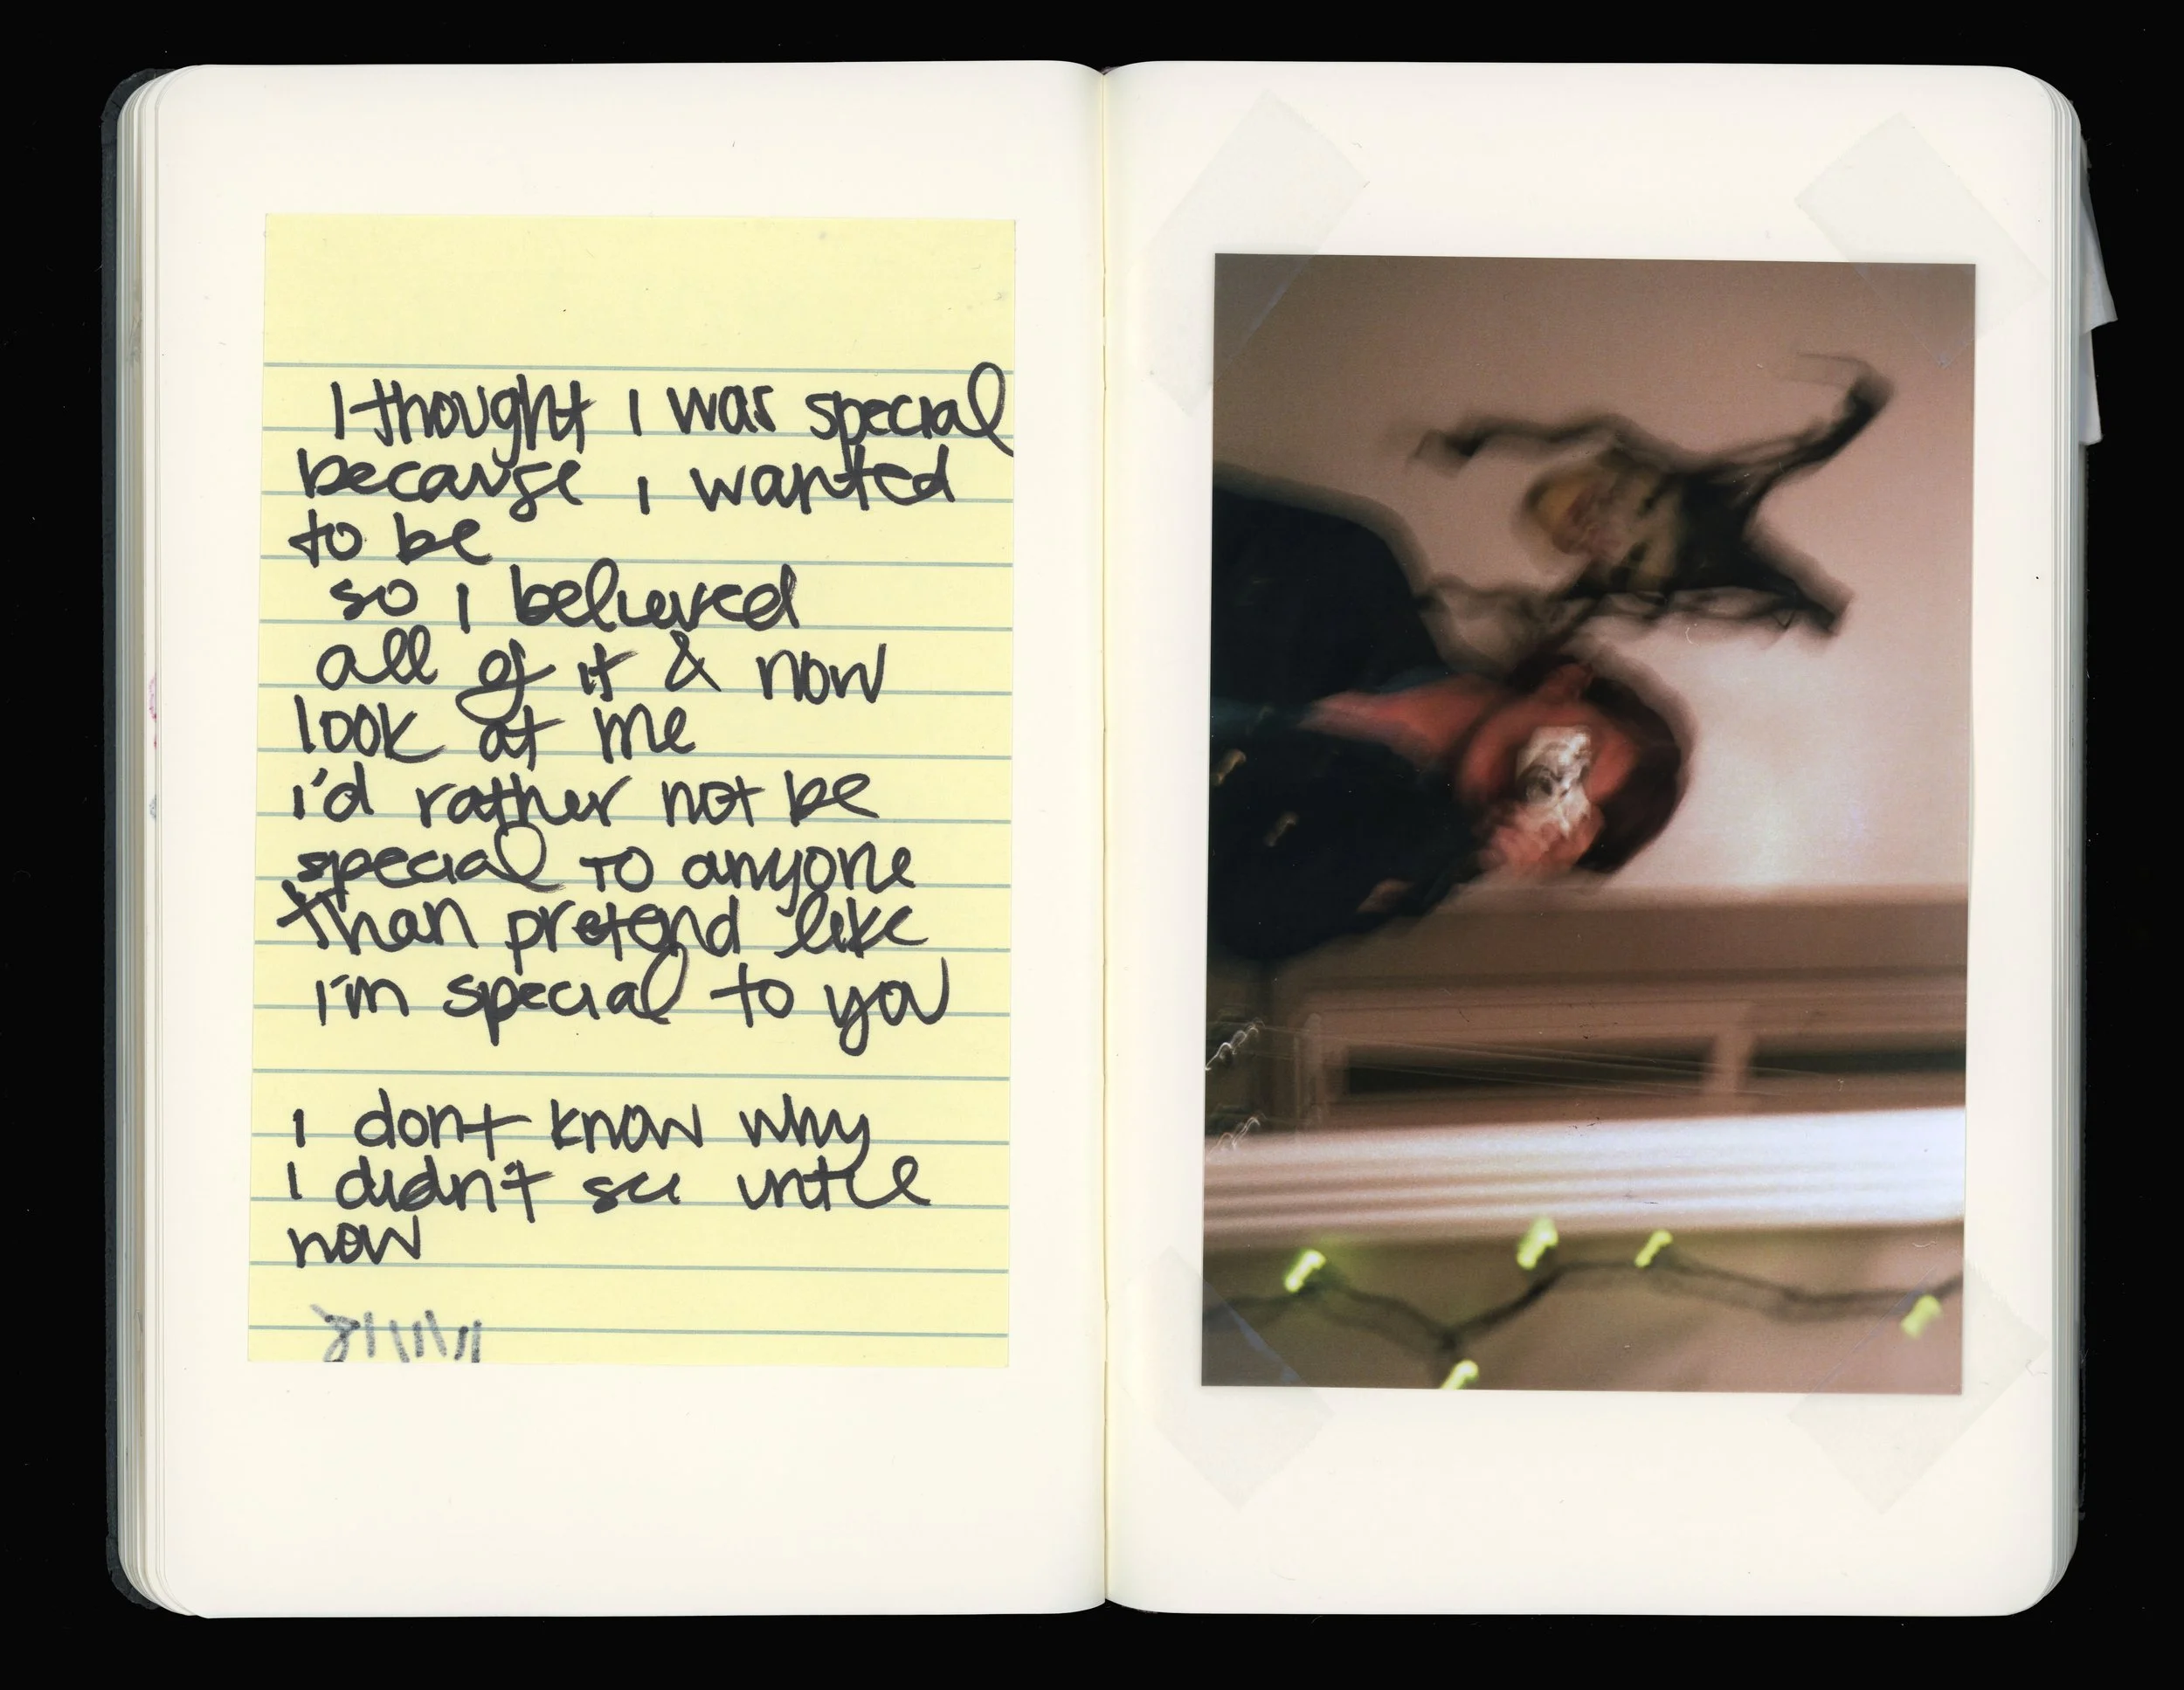 I thought I was special
because I wanted
to be
so I believed
all of it & now
look at me
i'd rather not be
special to anyone
than pretend like
i'm special to you
I don't know why
I didn't see untill
now